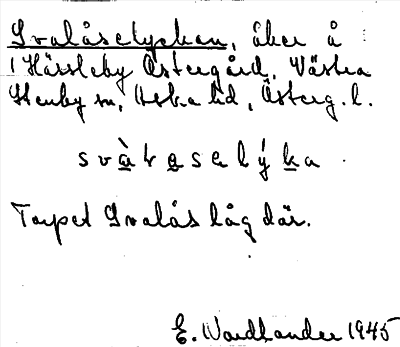 Svalåselyckan, åker å
1 Hässleby Östergård, Västra
Stenby sn, Aska hd, Österg. l.
svàlaselýka.
Torpet Svalås låg där.
E. Nordlander 1945